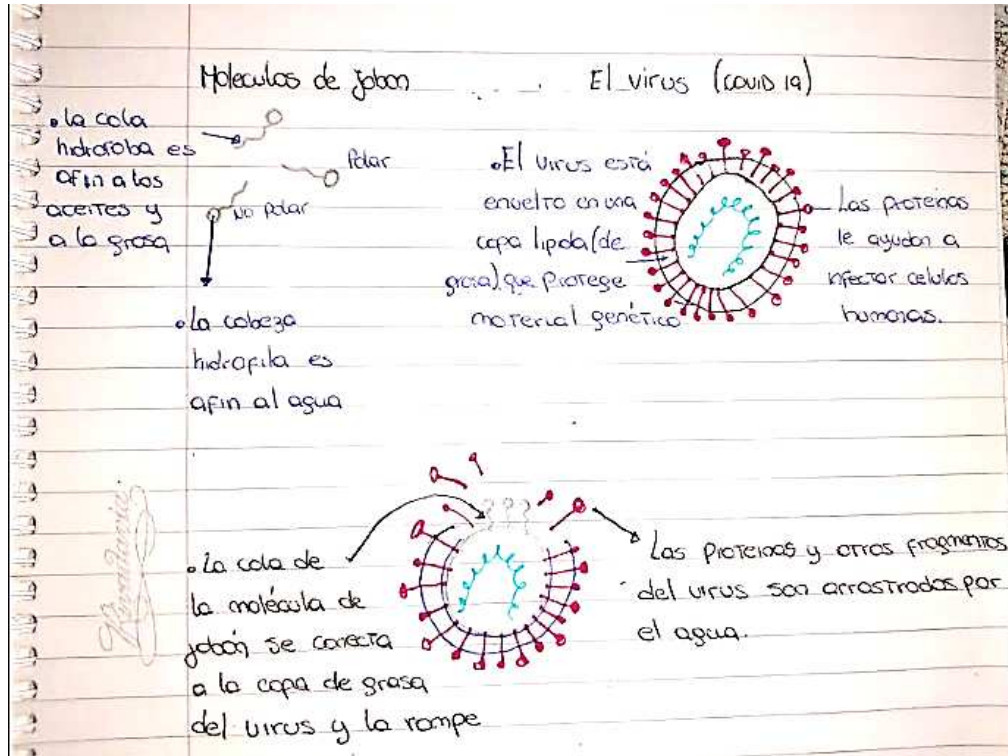 Moleculas de jabon
• la cola
hidrofoba es
afin a los
aceites y
a la grasa
Polar
No Polar
• la cabeza
hidrofila es
afin al agua
El virus (COVID 19)
• El virus está
envuelto en una
capa lipida (de
grasa) que protege
material genético
Las proteinas
le ayudan a
infectar celulas
humanas.
• La cola de
la molécula de
jabón se conecta
a la capa de grasa
del virus y la rompe
Las proteinas y otros fragmentos
del virus son arrastrados por
el agua.